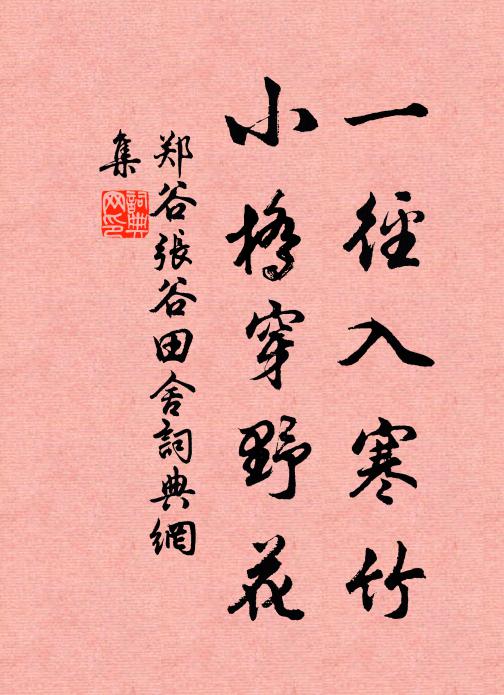 一徑入寒竹
小橋穿野花
郑谷張谷田舍詞典網
集
詞典
网印